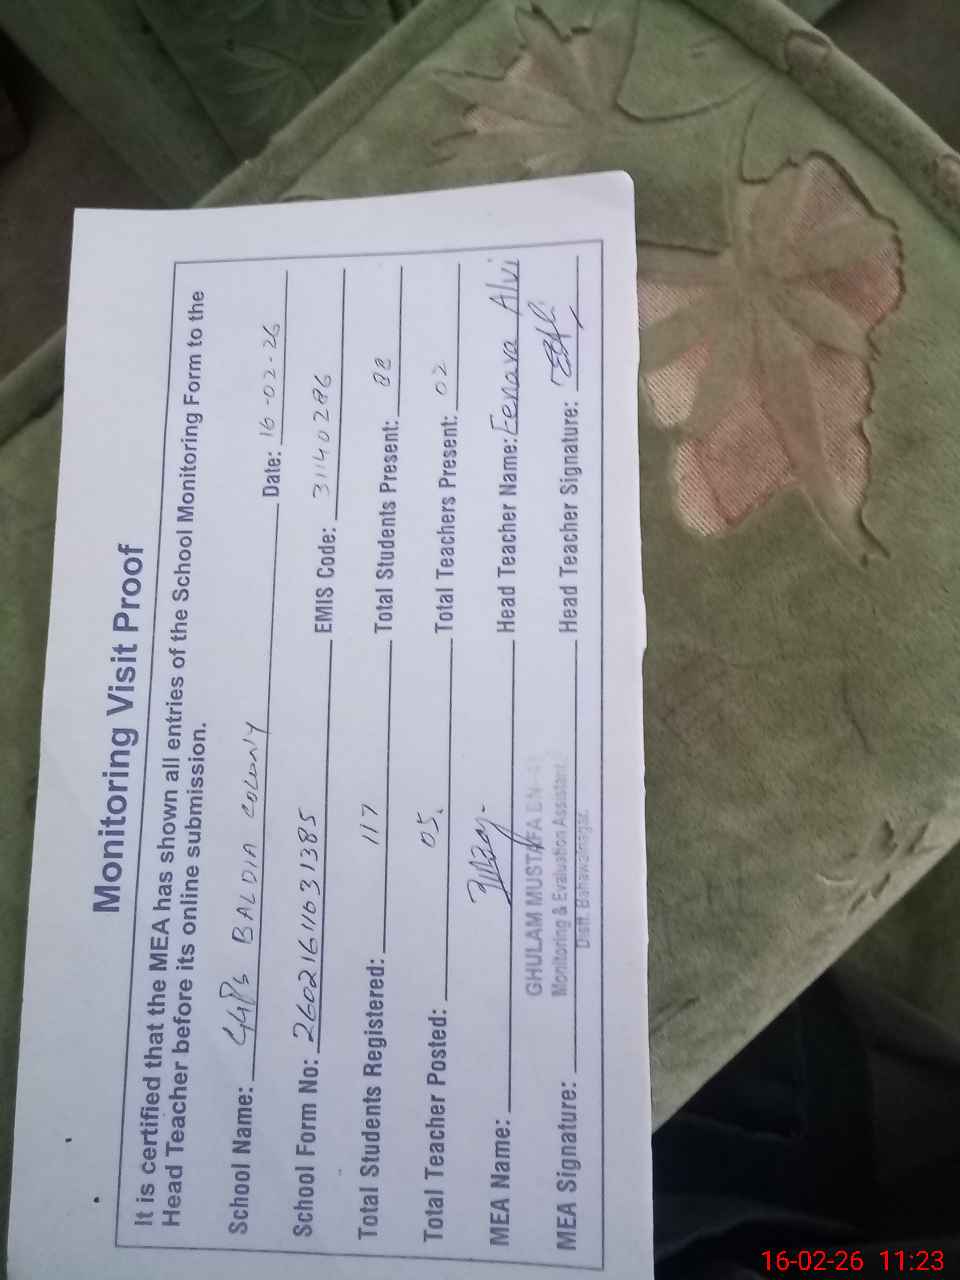 Monitoring Visit Proof
It is certified that the MEA has shown all entries of the School Monitoring Form to the
Head Teacher before its online submission.
School Name: GGPS BALDIA COLONY Date: 16-02-26
School Form No: 260216111631385 EMIS Code: 31140286
Total Students Registered: 117 Total Students Present: 88
Total Teacher Posted: 05. Total Teachers Present: 02
MEA Name: Head Teacher Name: Eenara Alvi
GHULAM MUSTAFA EN-41
MEA Signature: Monitoring & Evaluation Assistant. Head Teacher Signature:
Distt. Bahawalnagar.
16-02-26 11:23